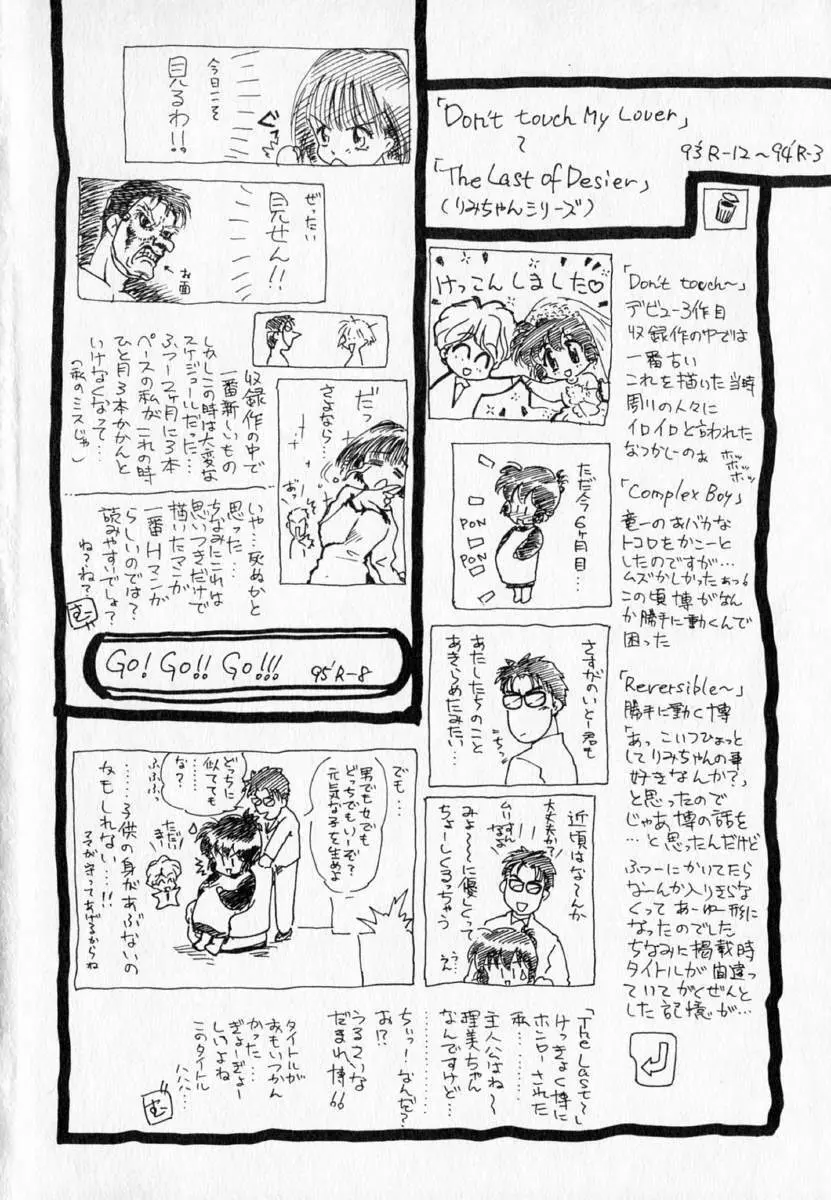 「Don't touch My Lover」
〜
「The Last of Desier」
(りみちゃんシリーズ)
93'R-12〜94'R-3
「Don't touch〜」
デビュー3作目
収録作の中では
一番古い
これを描いた当時
周りの人々に
イロイロと言われた
なつかしーのぉ
ホッ
ホッ
ホッ
「Complex Boy」
竜一のおバカな
トコロをかこーと
したのですが…
ムズかしかったぁっ。
この頃博がなん
か勝手に動くんで
困った
「Reversible〜」
勝手に動く博
「あっこいつひょっと
してりみちゃんの事
好きなんか?」
と思ったので
じゃあ博の話を
…と思ったんだけど
ふつーにかいてたら
なーんか入りきらな
くってあーゆー形に
なったのでした
ちなみに掲載時
タイトルが間違っ
ていてがくぜんと
した記憶が…
けっこんしました♡
ただ今6ヶ月目…
PON
PON
さすがのいとー君も
あたしたちのこと
あきらめたみたい…
近頃はな〜んか
みょ〜〜に優しくって
ちょーしくるっちゃう
大丈夫か?
ムリすん
なよ
うえん
「The Last〜」
けっきょく博に
ホンローされた
私…………
主人公はね〜
理美ちゃん
なんですけど…
……………
ちぃっ!なんだ?
お!?
うるさいな
だまれ博。。
タイトルが
おもいつかん
かった…
ぎょーぎょー
しいよね
このタイトル
ハハハ…
む
でも…
男でも女でも
どっちでもいーぞ?
元気な子を生めよ
どっちに
似てても
な?
ふふふっ
ただい
まー
……子供の身があぶないの
かもしれない…!!
ママが守ってあげるからね
今日こそ
見るわ!!
ぐっ
ぜったい
見せん!!
お面
だっ
さよなら…
おっ
収録作の中で
一番新しいもの
しかしこの時は大変な
スケジュールだった…
ふつー2ヶ月に3本
ペースの私がこれの時
ひと月3本かかんと
いけなくなって…
(私のミスじゃ)
いや…死ぬかと
思った…
ちなみにこれは
思いつきだけで
描いたマンガ
一番Hマンガ
らしいのでは?
読みやすいでしょ?
ね?ね?
む
Go! Go!! Go!!! 95'R-8